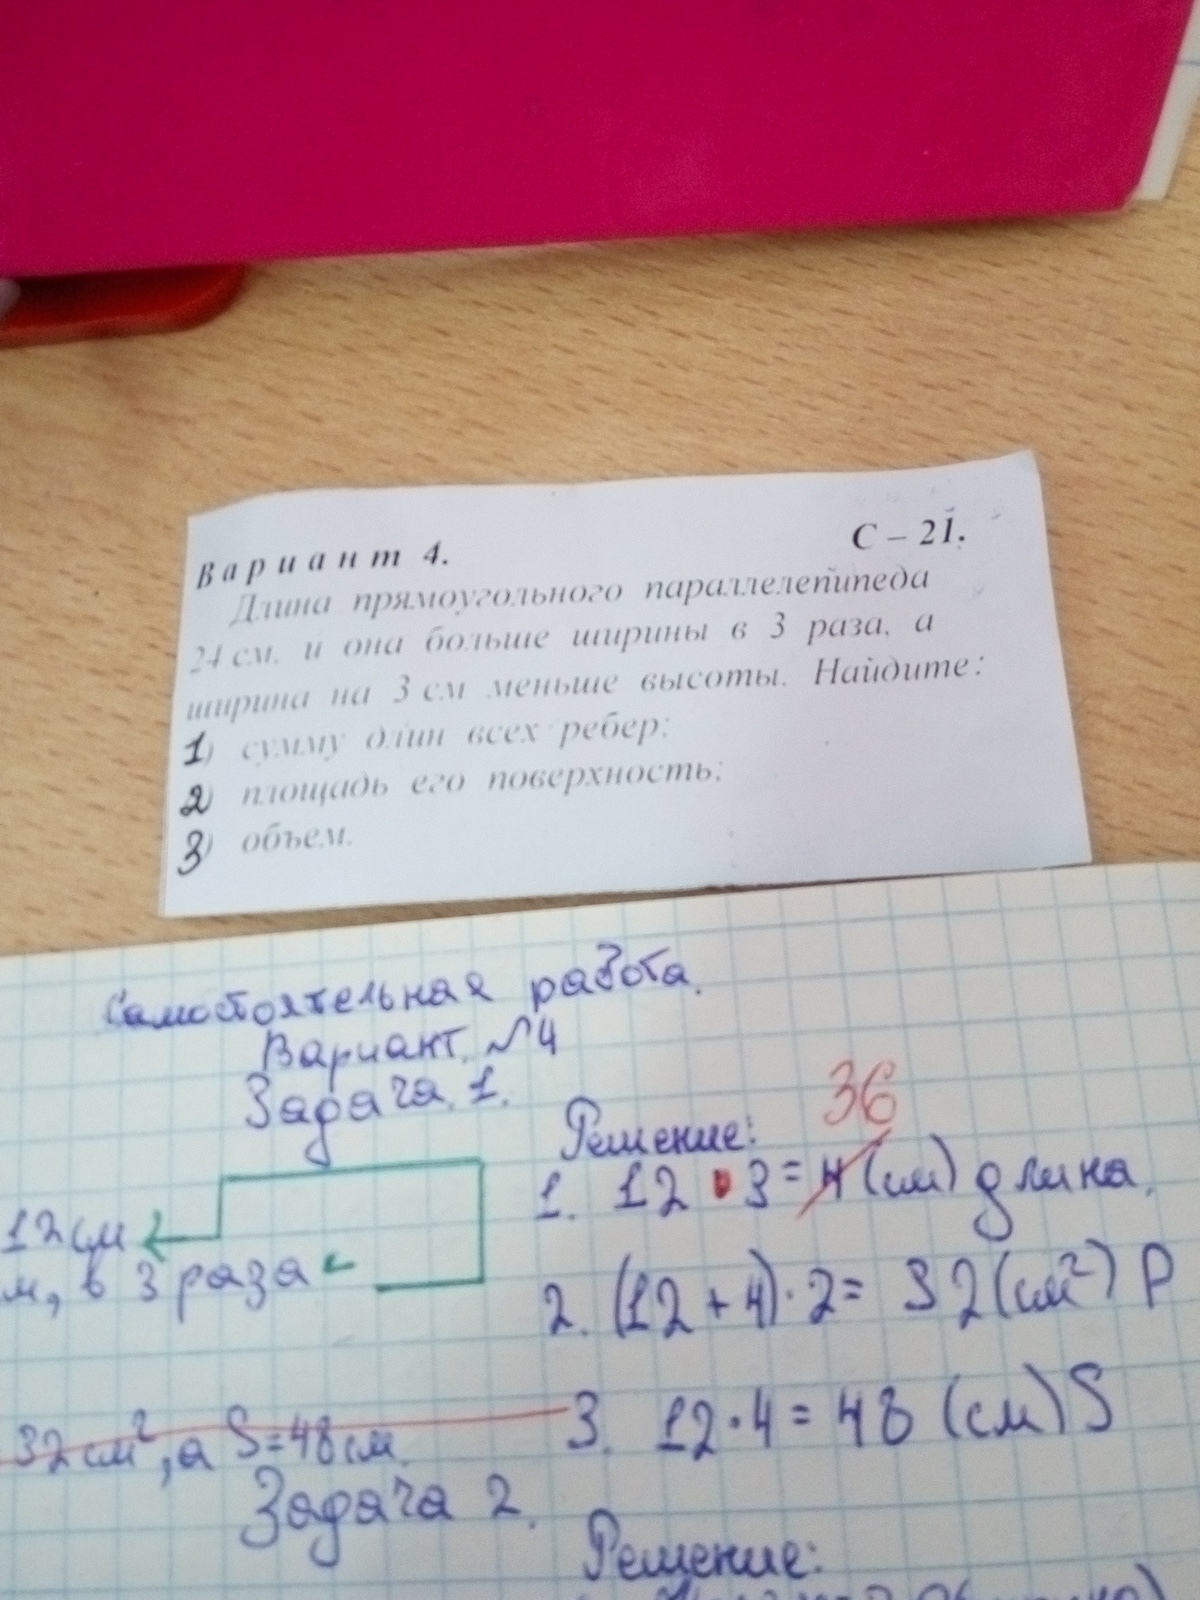 Вариант 4. С – 21.
Длина прямоугольного параллелепипеда
24 см, и она больше ширины в 3 раза, а
ширина на 3 см меньше высоты. Найдите:
1) сумму длин всех ребер;
2) площадь его поверхность;
3) объем.
Самостоятельная работа.
Вариант. №4
Задача. 1.
Решение: 36
1. 12 • 3 = 4 (см) длина.
12см
м, в 3 раза
2. (12 + 4) · 2 = 32 (см²) P
3. 12 · 4 = 48 (см) S
32 см², а S = 48 см.
Задача 2.
Решение: